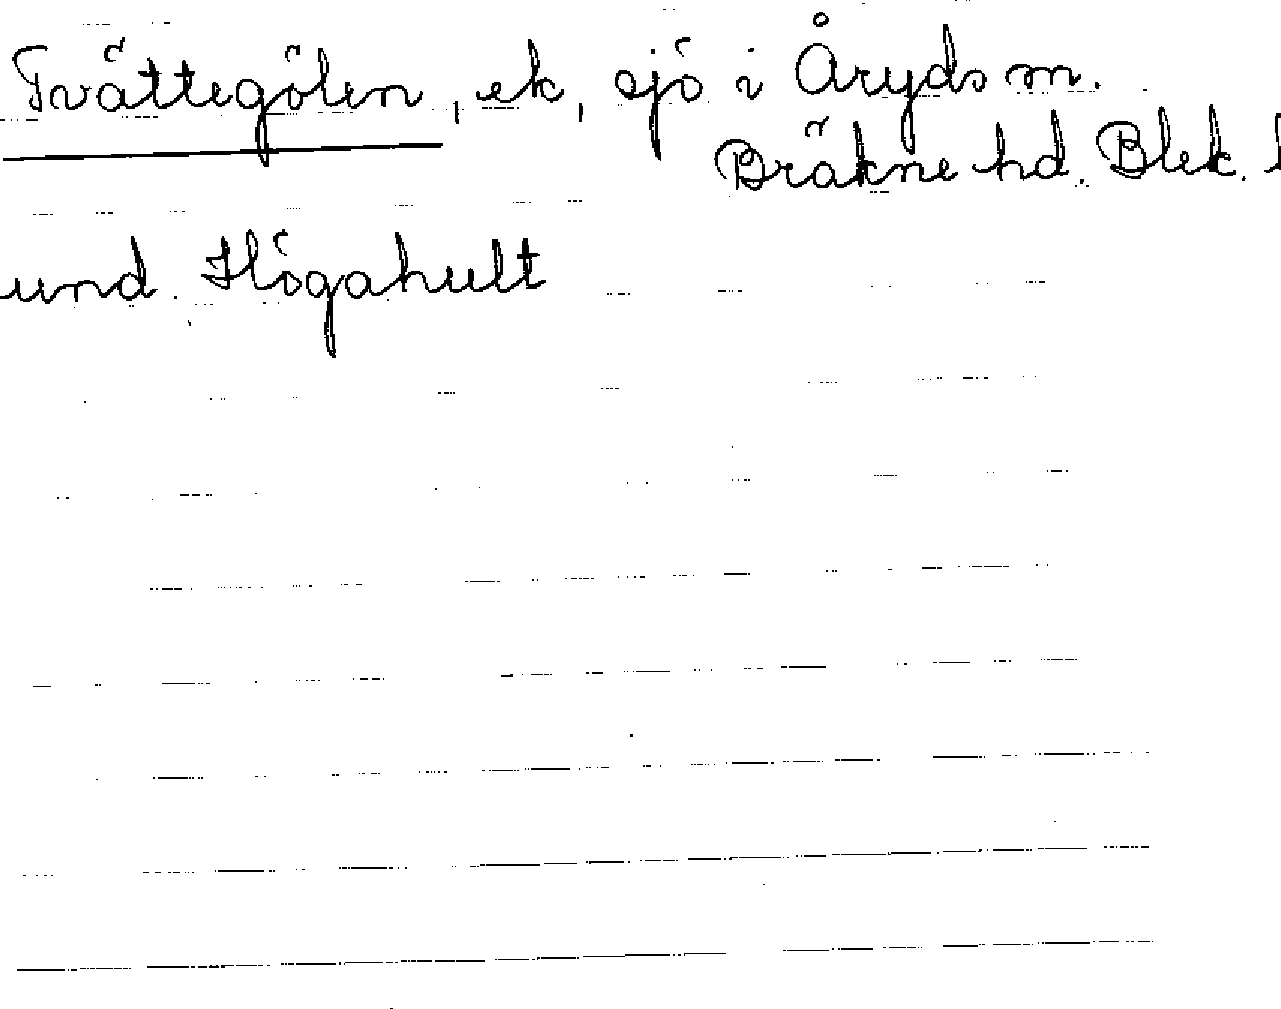 Tvättegölen, ek, sjö i Åryds m.
Bräkne hd. Blek.
und. Högahult